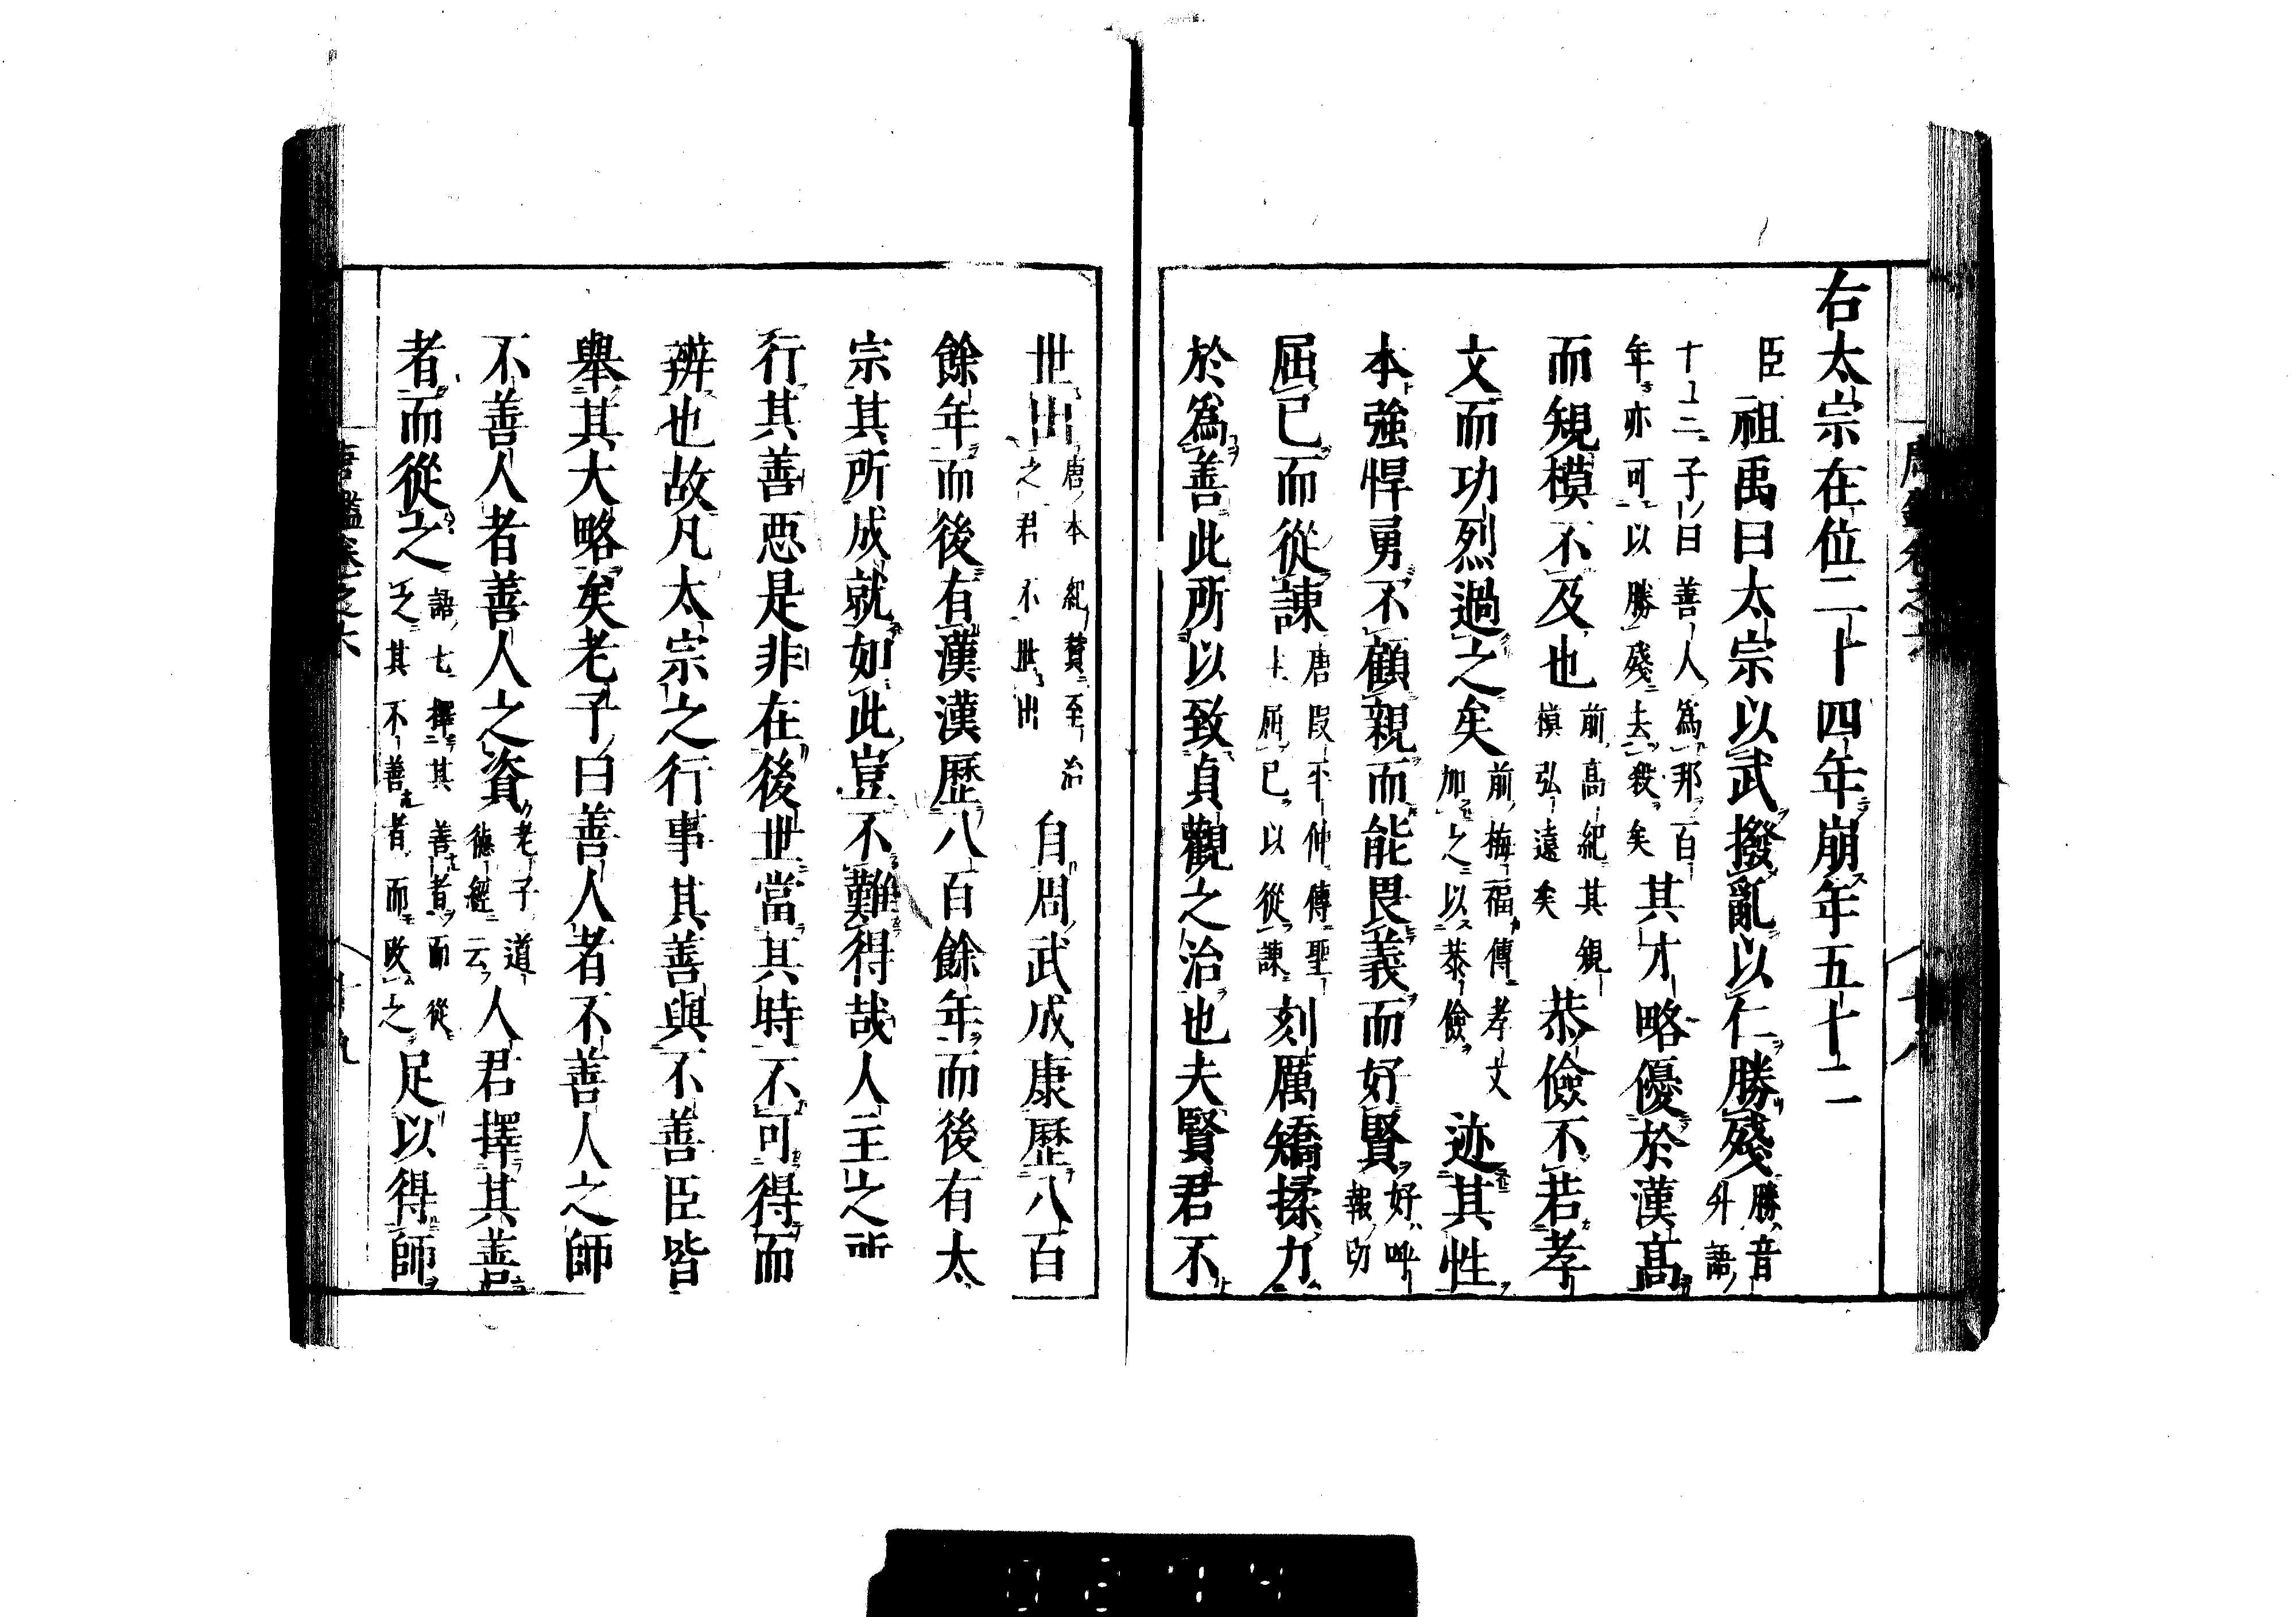 右太宗在位二十四年崩年五十二
臣祖禹曰太宗以武撥亂以仁勝殘勝音升語
十二子曰善人為邦百年亦可以勝殘去殺矣其才略優於漢高
而規模不及也前高紀其規模弘遠矣恭儉不若孝
文而功烈過之矣前梅福傳孝文加之以恭儉迹其性
本強悍勇不顧親而能畏義而好賢好呼報切
屈己而從諫唐段平仲傳聖上屈己以從諫刻厲矯揉力
於為善此所以致貞觀之治也夫賢君不
世出唐本紀贊至治之君不世出自周武成康歷八百
餘年而後有漢漢歷八百餘年而後有太
宗其所成就如此豈不難得哉人主之所
行其善惡是非在後世當其時不可得而
辨也故凡太宗之行事其善與不善臣皆
舉其大略矣老子曰善人者不善人之師
不善人者善人之資老子道德經云人君擇其善
者而從之語七擇其善者而從之其不善者而改之足以得師
唐鑑卷之六